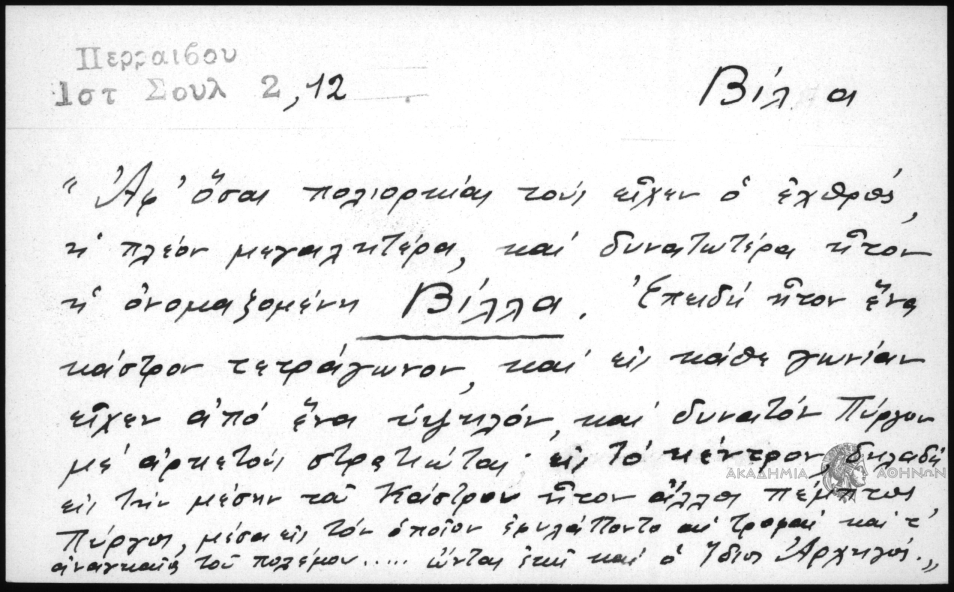 Περραιβου
Ιστ Σουλ 2,12
Βίλ α
"Ἀφ' ὅσας πολιορκίας τούς εἶχεν ὁ ἐχθρός,
ἡ πλέον μεγαλητέρα, καί δυνατωτέρα ἦτον
ἡ ὀνομαζομένη Βίλλα. Ἐπειδή ἦτον ἕνα
κάστρον τετράγωνον, καί εἰς κάθε γωνίαν
εἶχεν ἀπό ἕνα ὑψηλόν, καί δυνατόν Πύργον
μέ ἀρκετούς στρατιώτας· εἰς τό κέντρον δηλαδή
εἰς τήν μέσην τοῦ Κάστρου ἦτον ἄλλος πέμπτος
Πύργος, μέσα εἰς τόν ὁποῖον ἐφυλάττοντο αἱ τροφαί καί τ'
ἀναγκαῖα τοῦ πολέμου..... ὤντας ἐκεῖ καί ὁ ἴδιος Ἀρχηγός."
ΑΚΑΔΗΜΙΑ ΑΘΗΝΩΝ